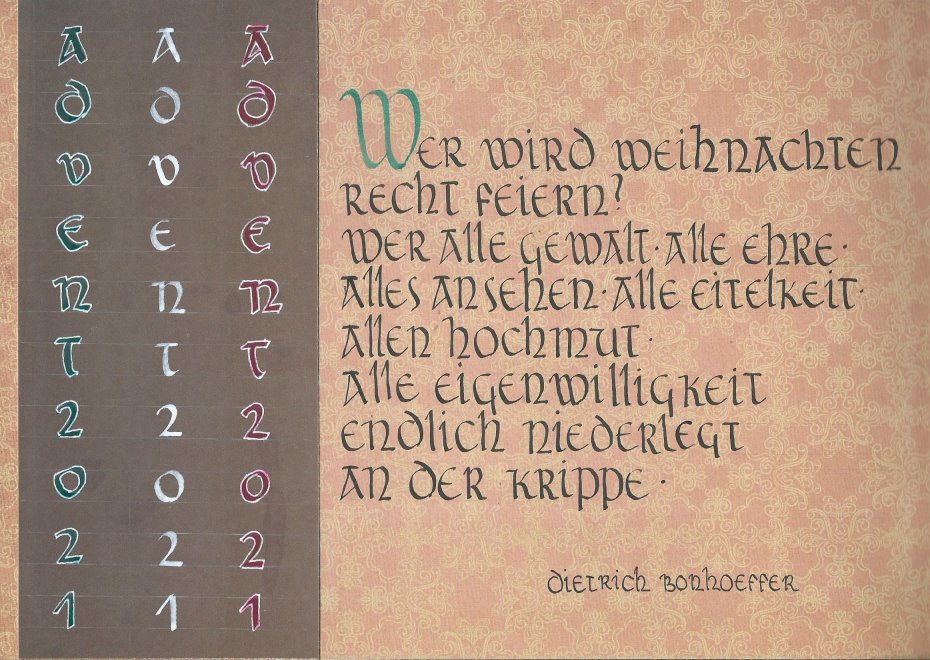 A A A
D D D
V V V
E E E
N N N
T T T
2 2 2
0 0 0
2 2 2
1 1 1
Wer wird Weihnachten
recht feiern?
Wer alle Gewalt · alle Ehre ·
alles Ansehen · alle Eitelkeit ·
allen Hochmut ·
alle Eigenwilligkeit
endlich niederlegt
an der Krippe ·
Dietrich Bonhoeffer